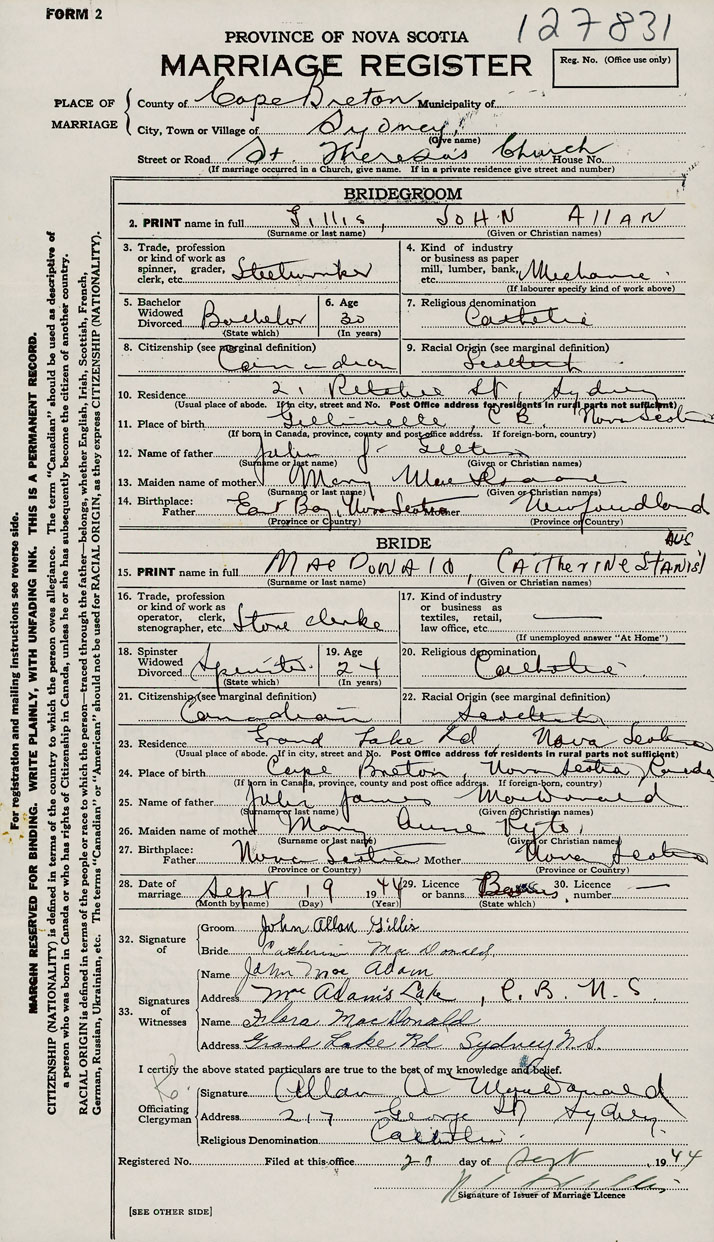 FORM 2
127831
PROVINCE OF NOVA SCOTIA
MARRIAGE REGISTER
Reg. No. (Office use only)
PLACE OF MARRIAGE
County of Cape Breton Municipality of
City, Town or Village of Sydney
(Give name)
Street or Road St. Theresa's Church House No.
(If marriage occurred in a Church, give name. If in a private residence give street and number)
BRIDEGROOM
2. PRINT name in full Gillis, JOHN Allan
(Surname or last name) (Given or Christian names)
3. Trade, profession or kind of work as spinner, grader, clerk, etc. Steelworker
4. Kind of industry or business as paper mill, lumber, bank, etc.
(If labourer specify kind of work above)
5. Bachelor Widowed Divorced Bachelor
(State which)
6. Age 30
(In years)
7. Religious denomination Catholic
8. Citizenship (see marginal definition) Canadian
9. Racial Origin (see marginal definition) Scottish
10. Residence 21 Ritchie St, Sydney
(Usual place of abode. If in city, street and No. Post Office address for residents in rural parts not sufficient)
11. Place of birth C B, Nova Scotia
(If born in Canada, province, county and post office address. If foreign-born, country)
12. Name of father John J.
(Surname or last name) (Given or Christian names)
13. Maiden name of mother Mary
(Surname or last name) (Given or Christian names)
14. Birthplace: Father East Bay, Nova Scotia Mother Newfoundland
(Province or Country) (Province or Country)
BRIDE
15. PRINT name in full MacDonald, CAtherine Stanislaus
(Surname or last name) (Given or Christian names)
16. Trade, profession or kind of work as operator, clerk, stenographer, etc Store clerke
17. Kind of industry or business as textiles, retail, law office, etc —
(If unemployed answer "At Home")
18. Spinster Widowed Divorced Spinster
(State which)
19. Age 24
(In years)
20. Religious denomination Catholic
21. Citizenship (see marginal definition) Canadian
22. Racial Origin (see marginal definition) Scottish
23. Residence Grand Lake Rd, Nova Scotia
(Usual place of abode. If in city, street and No. Post Office address for residents in rural parts not sufficient)
24. Place of birth Cape Breton, Nova Scotia, Canada
(If born in Canada, province, county and post office address. If foreign-born, country)
25. Name of father John James MacDonald
(Surname or last name) (Given or Christian names)
26. Maiden name of mother Mary Anne
(Surname or last name) (Given or Christian names)
27. Birthplace: Father Nova Scotia Mother Nova Scotia
(Province or Country) (Province or Country)
28. Date of marriage Sept 19 1944
(Month by name) (Day) (Year)
29. Licence or banns Banns
(State which)
30. Licence number —
32. Signature of
Groom John Allan Gillis
Bride Catherine MacDonald
33. Signatures of Witnesses
Name John Mac Adam
Address Mac Adam's Lake, C. B. N. S.
Name Flora MacDonald
Address Grand Lake Rd Sydney N.S.
I certify the above stated particulars are true to the best of my knowledge and belief.
Officiating Clergyman
Signature Allan A MacDonald
Address 217 George St Sydney
Religious Denomination Catholic
Registered No. Filed at this office 20 day of Sept, 1944
Signature of Issuer of Marriage Licence
[SEE OTHER SIDE]
For registration and mailing instructions see reverse side.
MARGIN RESERVED FOR BINDING. WRITE PLAINLY, WITH UNFADING INK. THIS IS A PERMANENT RECORD.
CITIZENSHIP (NATIONALITY) is defined in terms of the country to which the person owes allegiance. The term "Canadian" should be used as descriptive of
a person who was born in Canada or who has rights of Citizenship in Canada, unless he or she has subsequently become the citizen of another country.
RACIAL ORIGIN is defined in terms of the people or race to which the person—traced through the father—belongs, whether English, Irish, Scottish, French,
German, Russian, Ukrainian, etc. The terms "Canadian" or "American" should not be used for RACIAL ORIGIN, as they express CITIZENSHIP (NATIONALITY).